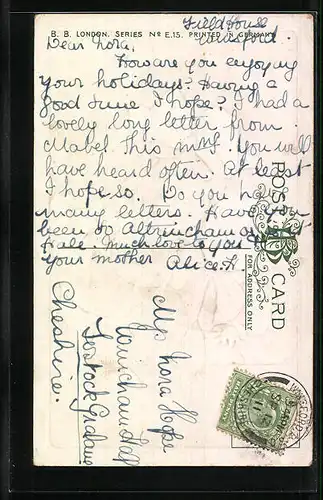 Field House
Winsford.
B. B. LONDON. SERIES No E.15. PRINTED IN GERMANY
Dear Nora,
How are you enjoying
your holidays? Having a
good time I hope? I had a
lovely long letter from
Mabel this mng. You will
have heard often. At least
I hope so. Do you
many letters. Have you
been to Altrincham or
Hale. Much love to you
your mother Alice H.
POST CARD
FOR ADDRESS ONLY
Miss Nora Hope
Hall
Lostock Gralam
Cheshire.
WINSFORD